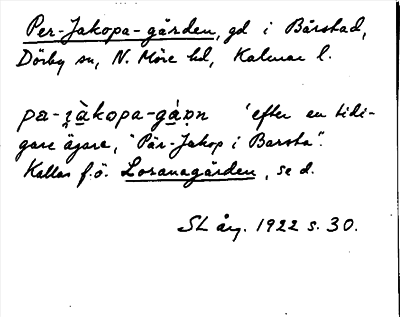 Per-Jakopa-gården, gd i Bårstad,
Dörby sn, N. Möre hd, Kalmar l.
pæ-jàkopa-gàṇn 'efter en tidi-
gare ägare, "Pär-Jakop i Barsta".
Kallas f.ö. Losanagården, se d.
SL årg. 1922 s. 30.